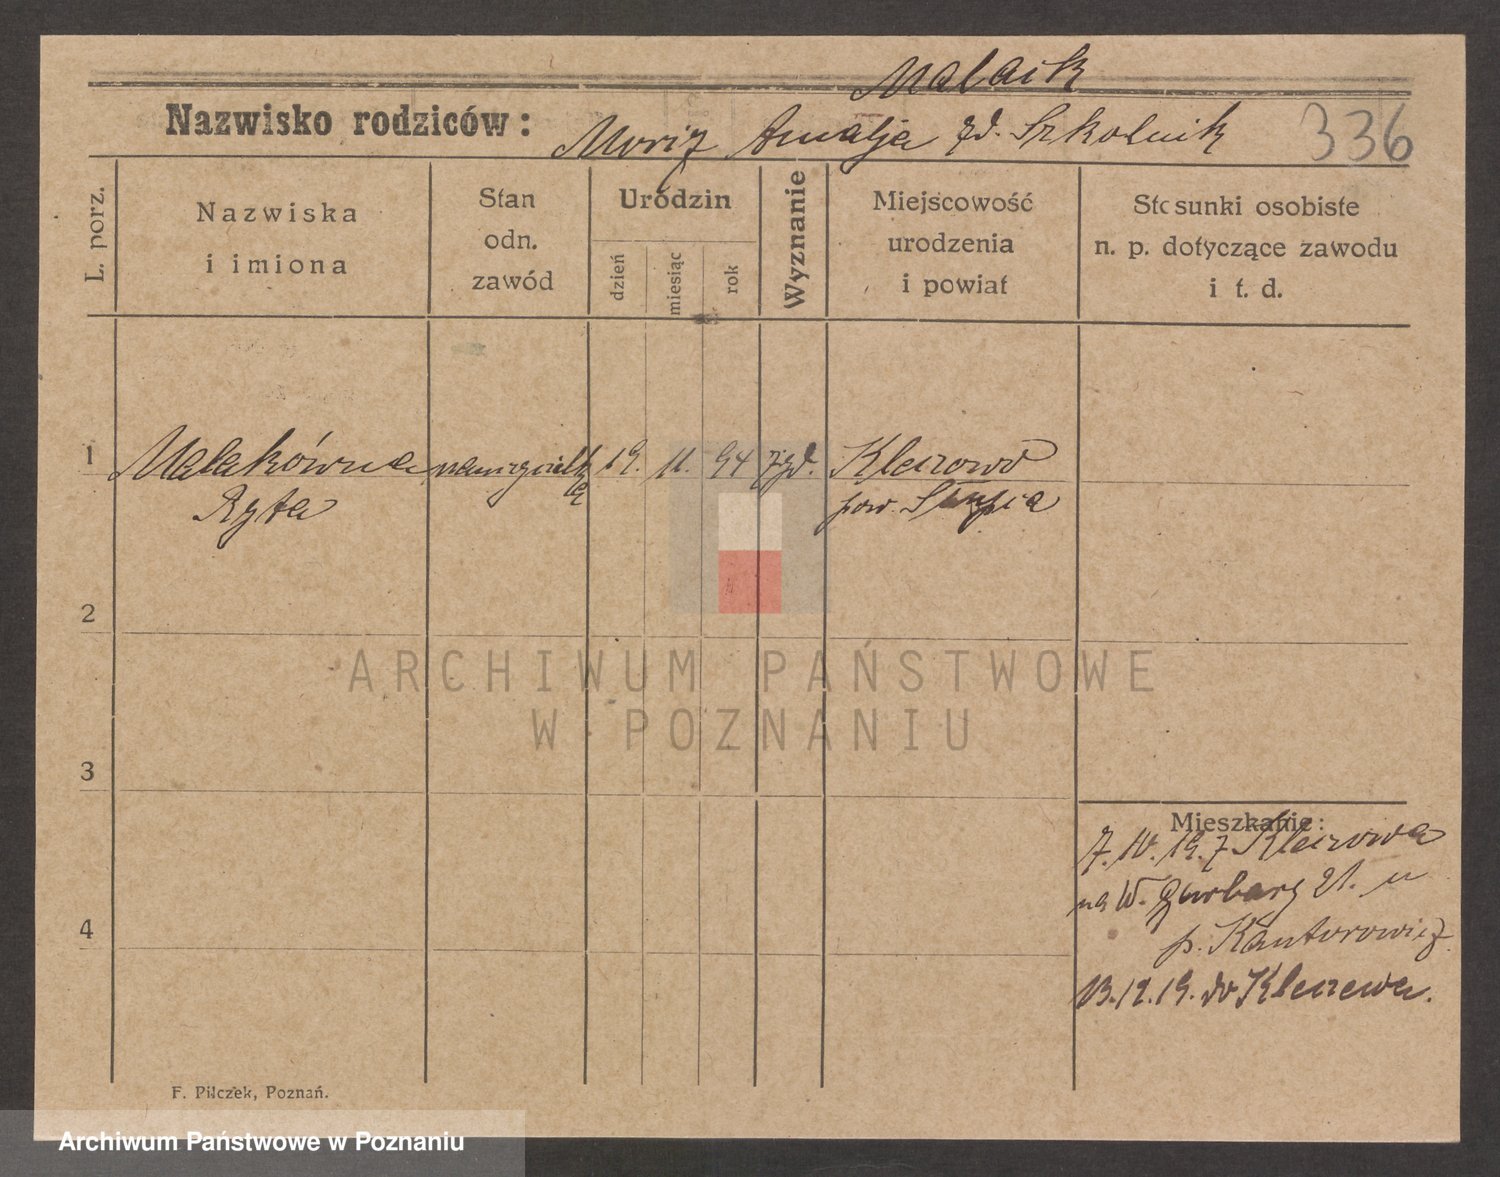 Malaik
Nazwisko rodziców: Moriz Amalja zd. Szkolnik 336
L. porz.
Nazwiska
i imiona
Stan
odn.
zawód
Urodzin
dzień
miesiąc
rok
Wyznanie
Miejscowość
urodzenia
i powiat
Stosunki osobiste
n. p. dotyczące zawodu
i t. d.
1 Malakówna nauczycielk 19. 11. 94 żyd. Kleczewo
Ryta ką pow. Słupca
2
3
4
Mieszkanie:
7.10.19. z Kleczewa
na W. Garbary 21. u
p. Kantorowicz
13.12.19. do Kleczewa.
F. Pilczek, Poznań.
ARCHIWUM PAŃSTWOWE
W POZNANIU
Archiwum Państwowe w Poznaniu